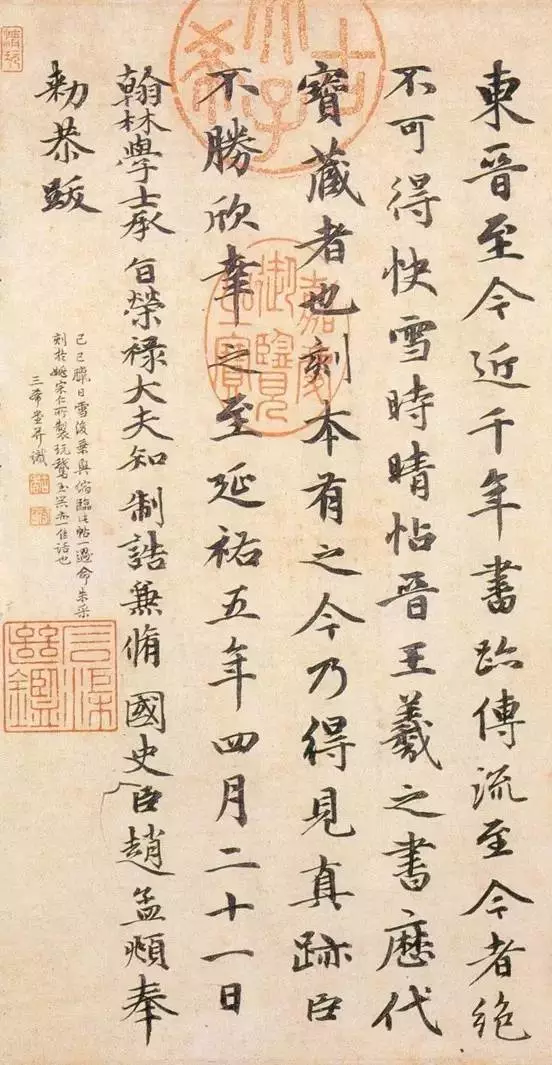 東晉至今近千年書跡傳流至今者絕
不可得快雪時晴帖晉王羲之書歷代
寶藏者也刻本有之今乃得見真跡臣
不勝欣幸之至延祐五年四月二十一日
翰林學士承旨榮祿大夫知制誥兼脩國史臣趙孟頫奉
敕恭跋
己巳臘日雪後乘興偶臨此帖一過命朱采
刻於姚宗仁所製玩鵞玉器亦佳話也
三希堂并識
古希天子
嘉慶御覽之寶